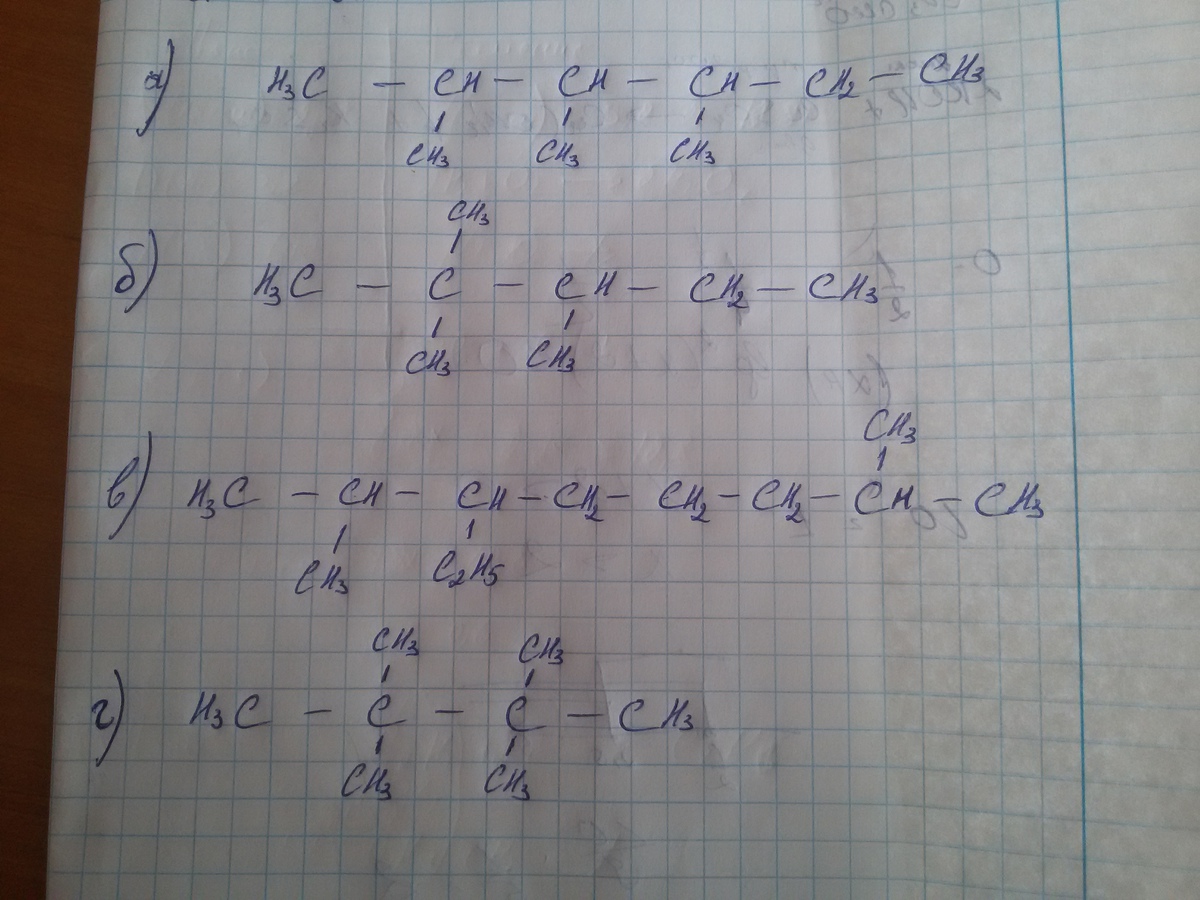 а) H₃C — CH — CH — CH — CH₂ — CH₃
CH₃ CH₃ CH₃
CH₃
б) H₃C — C — CH — CH₂ — CH₃
CH₃ CH₃
CH₃
в) H₃C — CH — CH — CH₂ — CH₂ — CH₂ — CH — CH₃
CH₃ C₂H₅
CH₃ CH₃
г) H₃C — C — C — CH₃
CH₃ CH₃